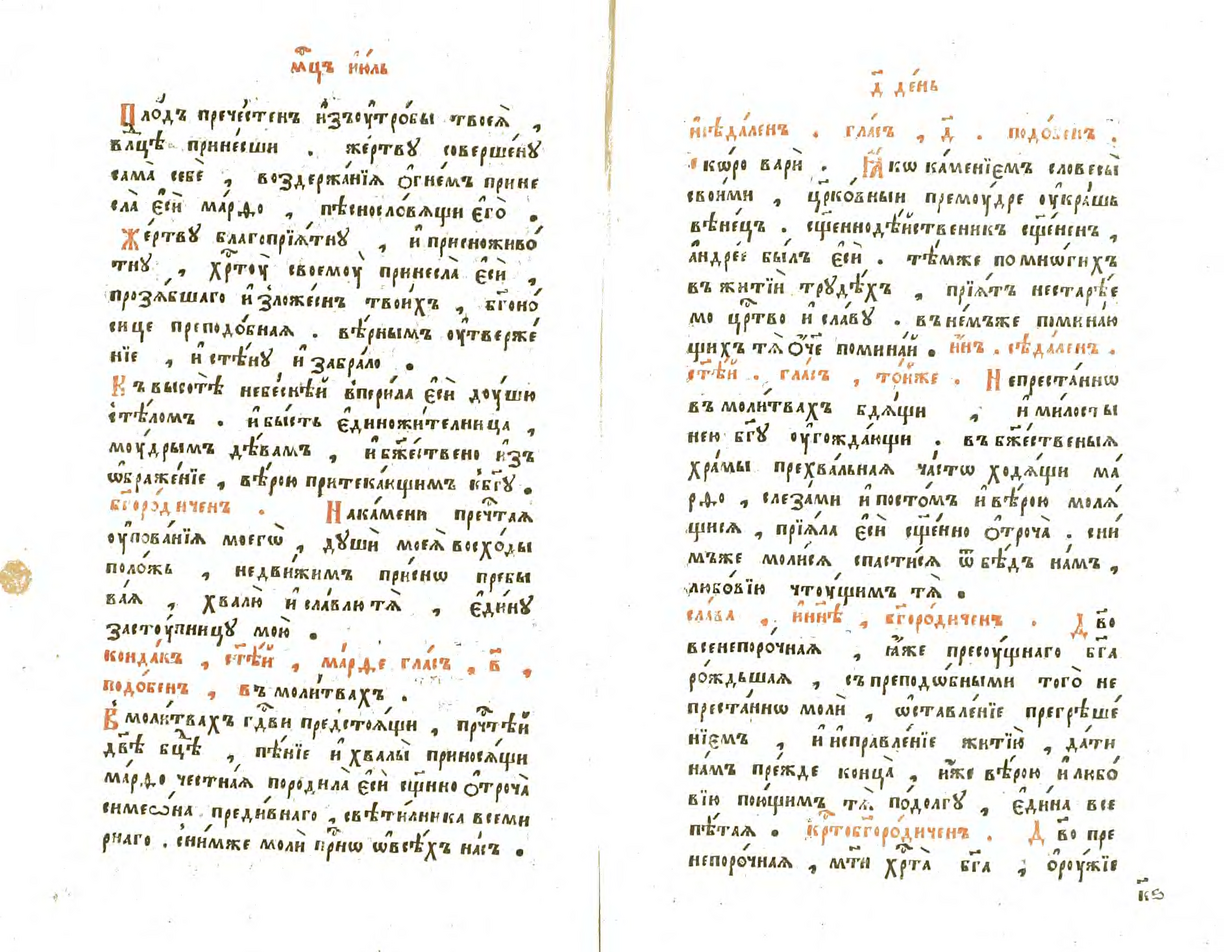 мⷭ҇цъ ию́ль
Пло́дъ пречⷭ҇тенъ и҆зъоу҆тро́бы твоеѧ̀ ,
влⷣцѣ прине́сши . же́ртву соверше́ну
сама̀ себѐ , воздержа́нїѧ о҆гне́мъ прине
сла̀ є҆сѝ ма́рѳо , пѣсносло́вѧщи є҆го̀ .
Же́ртву благопрїѧ́тну , и҆ присноживо́
тну , хрⷭ҇тоу̀ своемоу̀ принесла̀ є҆сѝ ,
прозѧ́бшаго и҆зложе́снъ твои́хъ , бг҃оно́
сице преподо́бная . вѣ́рнымъ оу҆тверже́
нїе , и҆ стѣ́ну и҆ забра́ло .
Къ высотѣ̀ небе́снѣй впери́ла є҆сѝ доу́шю
стѣ́ломъ . и҆ бы́сть є҆диножи́телница ,
моу́дрымъ дѣ́вамъ , и҆ бж҃е́ствено и҆зъ
ѡ҆браже́нїе , вѣ́рою притека́ющимъ къ бг҃у .
бг҃оро́диченъ . На ка́мени пречⷭ҇тая
оу҆пова́нїѧ моегѡ̀ , душѝ моеѧ̀ восхо́ды
положь , недви́жимъ при́снѡ пребы
ва́ѧ , хвалю̀ и҆ сла́влю тѧ̀ , є҆ди́ну
застоу́пницу мою̀ .
конда́къ , ст҃ѣ́й , ма́рѳе гла́съ , в҃ ,
подо́бенъ , въ моли́твахъ .
В моли́твахъ гдⷭ҇ви предстоѧ́щи , прчⷭ҇тѣ́й
дв҃ѣ бцⷣѣ , пѣ́нїе и҆ хвалы̀ приносѧ́щи
ма́рѳо честна́ѧ породи́ла є҆сѝ сщ҃нно о҆троча̀
симеѡ́на преди́внаго , свѣти́лника всеми́
рнаго . сни́мже молѝ прⷭ҇нѡ ѡ҆ всѣ́хъ на́съ .
д҃ де́нь
и҆ сѣда́ленъ . гла́съ , д҃ . подо́бенъ .
ско́ро варѝ . Ꙗ҆́кѡ ка́менїемъ словесы̀
свои́ми , црⷪ҇ко́вныи премоу́дре оу҆кра́шь
вѣне́цъ . сщ҃еннодѣ́йственикъ сщ҃е́ненъ ,
а҆ндре́е бы́лъ є҆сѝ . тѣ́мже по мнѡ́гихъ
въ житїѝ трудѣ́хъ , прїѧ́тъ нестарѣ́е
мо црⷭ҇тво и҆ сла́ву . въ не́мъже помина́ю
щихъ тѧ̀ ѻ҆́ч҃е помина́й . и҆́нъ . сѣда́ленъ .
ст҃ѣ́й . гла́съ , то́йже . Непреста́ннѡ
въ моли́твахъ бдѧ́щи , и҆ ми́лосты
нею бг҃у оу҆гожда́ющи . въ бж҃е́ственыѧ
хра́мы прехва́льная ча́стѡ ходѧ́щи ма́
рѳо , слеза́ми и҆ посто́мъ и҆ вѣ́рою молѧ́
щисѧ , прїѧ́ла є҆сѝ сщ҃е́нно о҆троча̀ . сни́
мъже моли́сѧ спасти́сѧ ѿ бѣ́дъ на́мъ ,
любо́вїю чтоу́щимъ тѧ̀ .
сла́ва , и҆ ны́нѣ , бг҃оро́диченъ . Дв҃о
всенепоро́чная , ꙗ҆́же пресоу́щнаго бг҃а
ро́ждьшая , съ преподѡ́бными того̀ не
преста́ннѡ молѝ , ѡ҆ставле́нїе прегрѣше́
нїемъ , и҆ исправле́нїе житїю̀ , да́ти
на́мъ пре́жде конца̀ , и҆́же вѣ́рою и҆ любо́
вїю пою́щимъ тѧ̀ по до́лгу , є҆ди́на все
пѣ́тая . крⷭ҇тобг҃оро́диченъ . Дв҃о пре
непоро́чная , мт҃и хрⷭ҇та̀ бг҃а , о҆роу́жїе
к҃ѕ